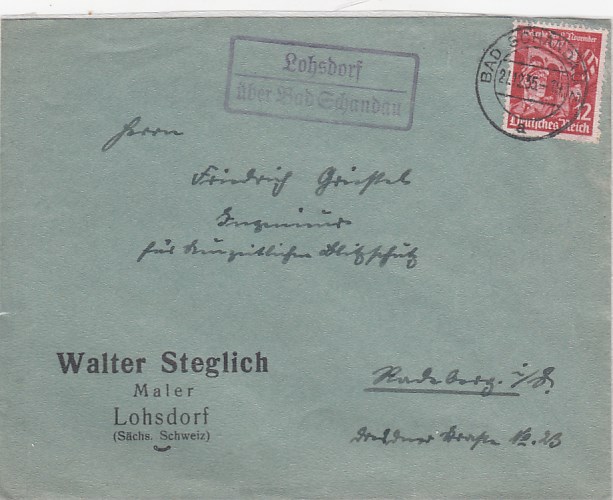 Lohsdorf
über Bad Schandau
BAD
Deutsches Reich
12
Herrn
Friedrich
Ingenieur
für neuzeitlichen Blitzschutz
Walter Steglich
Maler
Lohsdorf
(Sächs. Schweiz)
Radeberg i/S.
Dresdner Straße No. 23